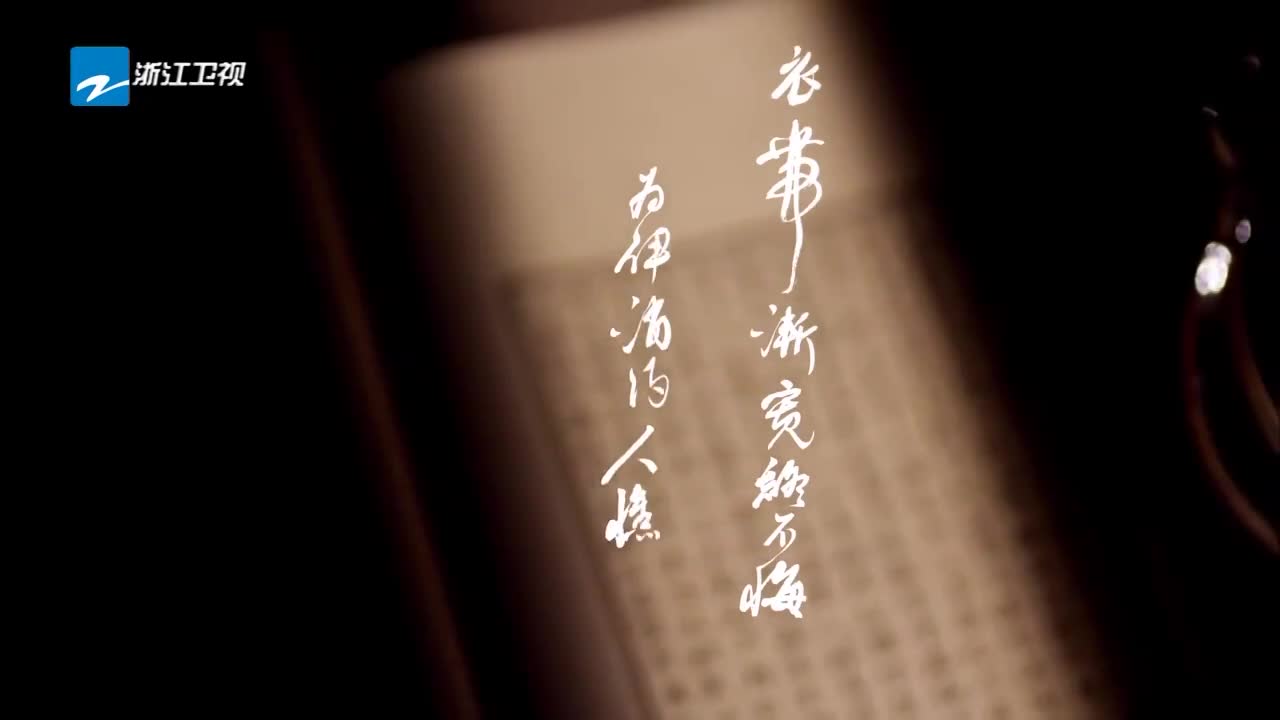 浙江卫视
衣帶漸宽終不悔
为伊消得人憔